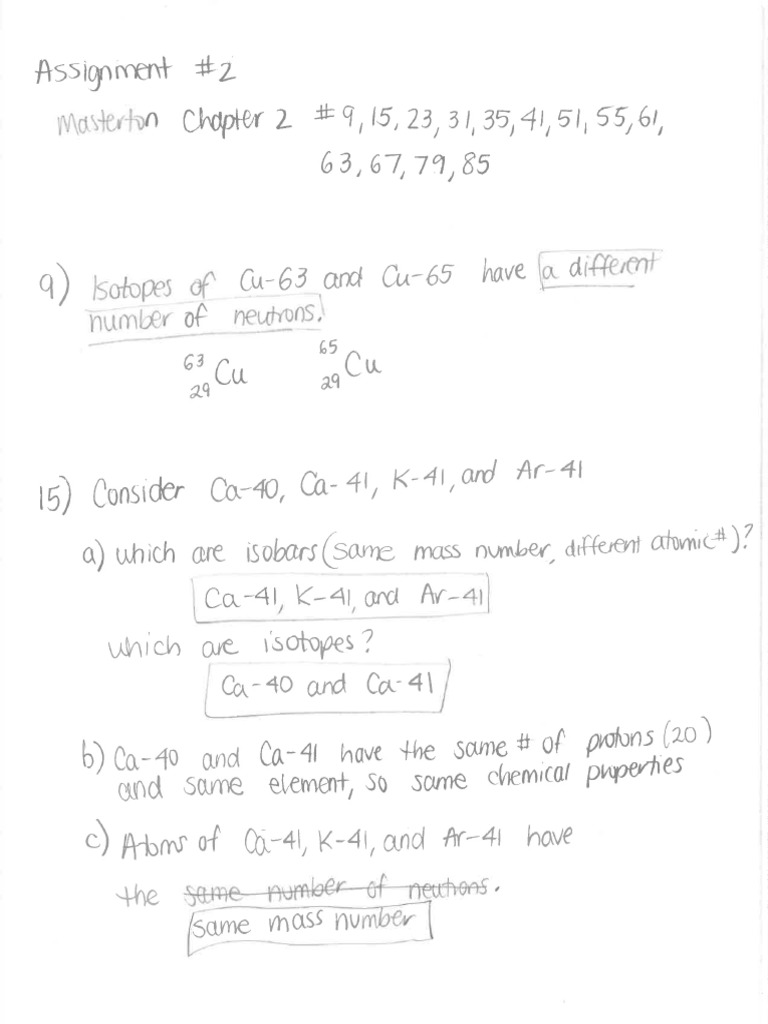 Assignment #2
Masterton Chapter 2 #9, 15, 23, 31, 35, 41, 51, 55, 61,
63, 67, 79, 85
9) Isotopes of Cu-63 and Cu-65 have a different
number of neutrons.
⁶³₂₉Cu ⁶⁵₂₉Cu
15) Consider Ca-40, Ca-41, K-41, and Ar-41
a) which are isobars (same mass number, different atomic #)?
Ca-41, K-41, and Ar-41
which are isotopes?
Ca-40 and Ca-41
b) Ca-40 and Ca-41 have the same # of protons (20)
and same element, so same chemical properties
c) Atoms of Ca-41, K-41, and Ar-41 have
the same number of neutrons.
same mass number